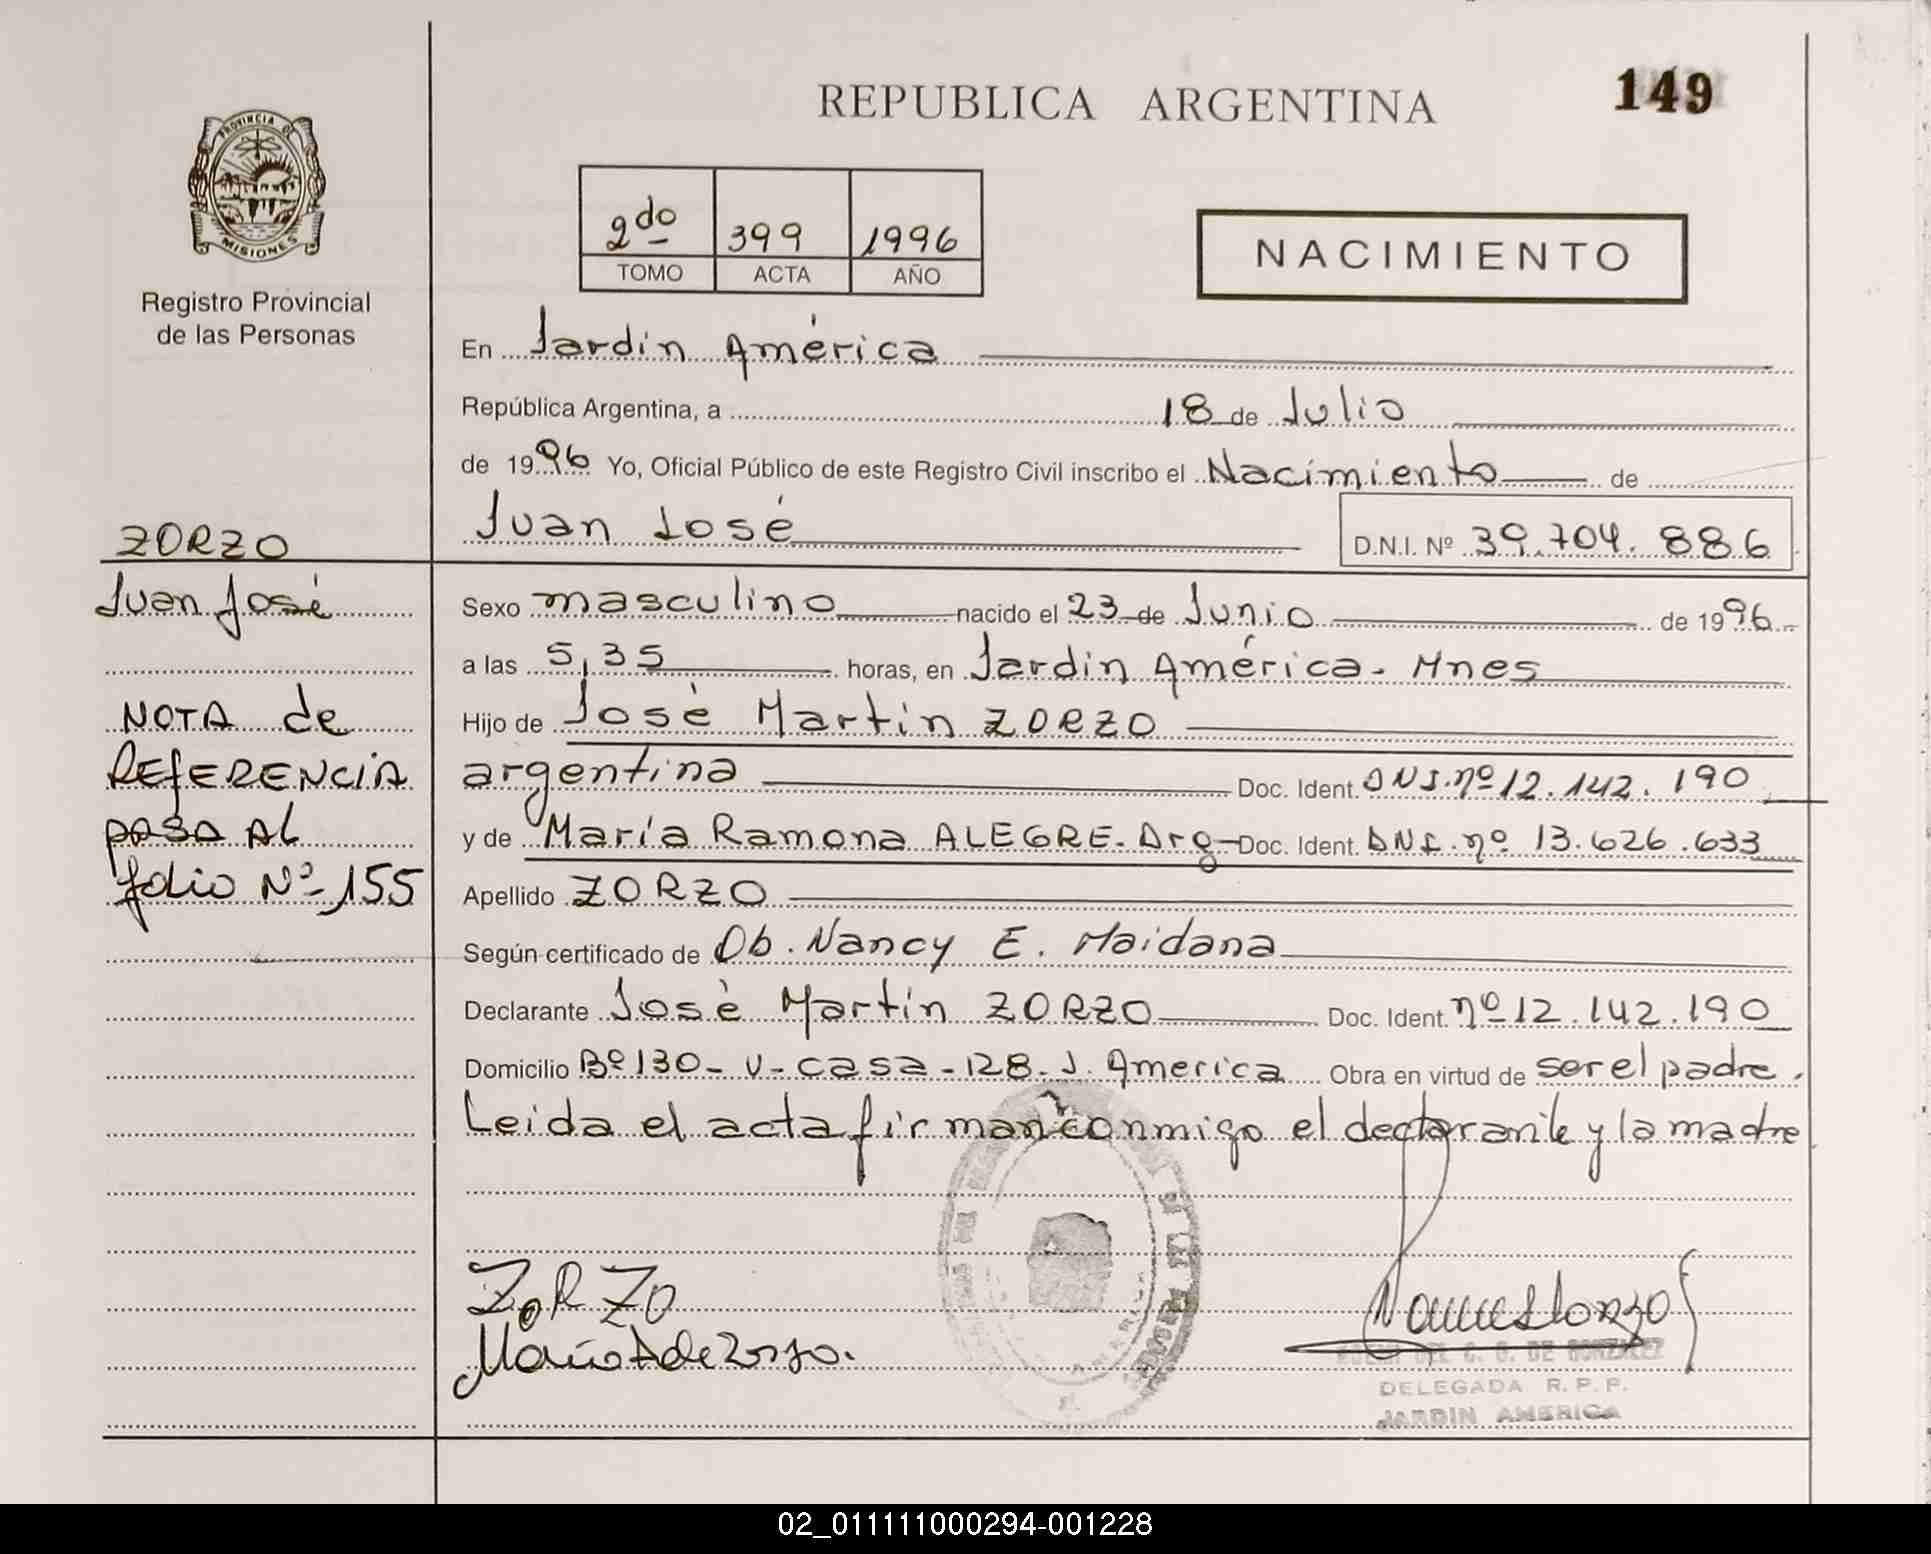 REPUBLICA ARGENTINA
149
PROVINCIA DE
MISIONES
Registro Provincial
de las Personas
2do 399 1996
TOMO ACTA AÑO
NACIMIENTO
En Jardin América
República Argentina, a 18 de Julio
de 1996 Yo, Oficial Público de este Registro Civil inscribo el Nacimiento de
Juan José
D.N.I. Nº 39.704.886
ZORZO
Juan José
NOTA de
REfERENCiA
PASA AL
folio Nº 155
Sexo masculino nacido el 23 de Junio de 1996
a las 5,35 horas, en Jardin América - Mnes
Hijo de José Martin ZORZO
argentina Doc. Ident. DNI. nº 12.142.190
y de María Ramona ALEGRE - Arg Doc. Ident. DNI. nº 13.626.633
Apellido ZORZO
Según certificado de Ob. Nancy E. Maidana
Declarante José Martín ZORZO Doc. Ident. nº 12.142.190
Domicilio Bº 130 - V - casa - 128 - J. America Obra en virtud de ser el padre.
Leida el acta firman conmigo el declarante y la madre
ZoRZo
María A de Zorzo.
DE GONZALEZ
DELEGADA R. P. P.
JARDIN AMERICA
02_011111000294-001228